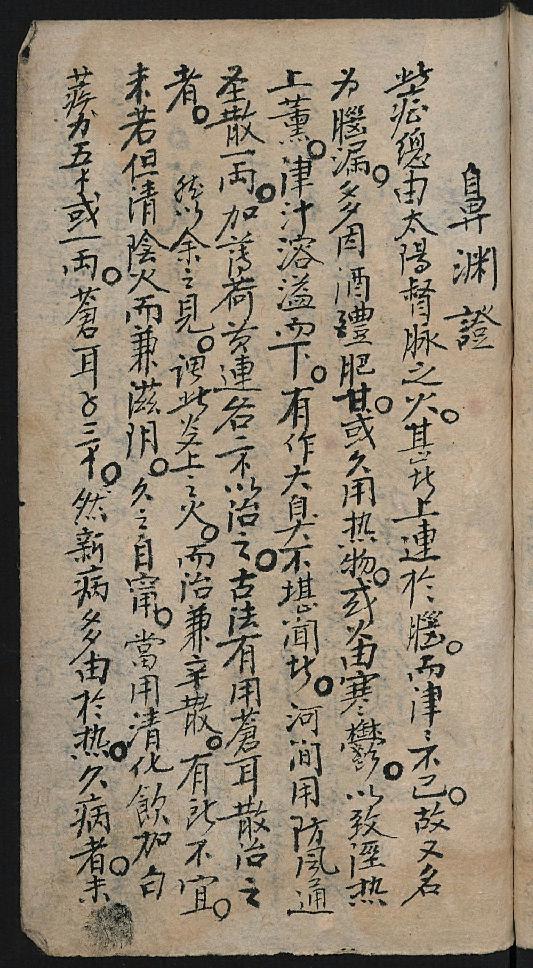 鼻淵證
此症總由太陽督脉之火。甚者上連於腦。而津〻不已。故又名
为腦漏。多因酒醴肥甘。或久用热物。或由寒鬱。以致溼热
上薰。津汁溶溢而下。有作大臭不堪聞者。河间用防风通
圣散一両。加薄荷黄連各二不以治之。古法有用蒼耳散治之
者。然以余之見。谓此炎上之火。而治兼辛散。有所不宜。
未若但清陰火而兼滋阴。久之自甯。當用清化飲加白
蒺力五十或一両。蒼耳子三十。然新病多由於热。久病者未